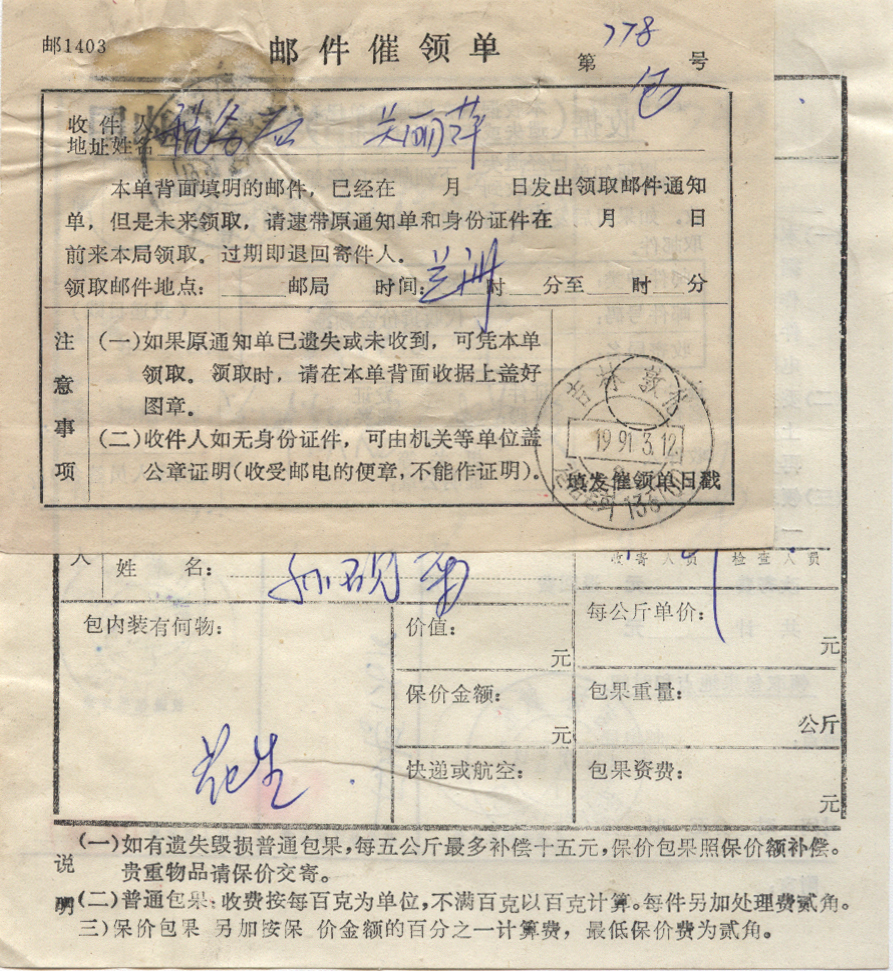 邮1403 邮件催领单 第 778 号
包
收件人
地址姓名 税务局 关丽萍
本单背面填明的邮件，已经在 月 日发出领取邮件通知
单，但是未来领取，请速带原通知单和身份证件在 月 日
前来本局领取。过期即退回寄件人。
领取邮件地点： 邮局 时间： 兰州 时 分至 时 分
注意事项
(一)如果原通知单已遗失或未收到，可凭本单
领取。领取时，请在本单背面收据上盖好
图章。
(二)收件人如无身份证件，可由机关等单位盖
公章证明(收受邮电的便章，不能作证明)。
吉林 敦化
1991.3.12
填发催领单日戳
人 姓 名：
收寄人员 检查人员
包内装有何物： 价值： 元 每公斤单价： 元
保价金额： 元 包果重量： 公斤
花生
快递或航空： 包果资费： 元
说明
(一)如有遗失毁损普通包果，每五公斤最多补偿十五元，保价包果照保价额补偿。
贵重物品请保价交寄。
(二)普通包果：收费按每百克为单位，不满百克以百克计算。每件另加处理费贰角。
三)保价包果 另加按保 价金额的百分之一计算费，最低保价费为贰角。